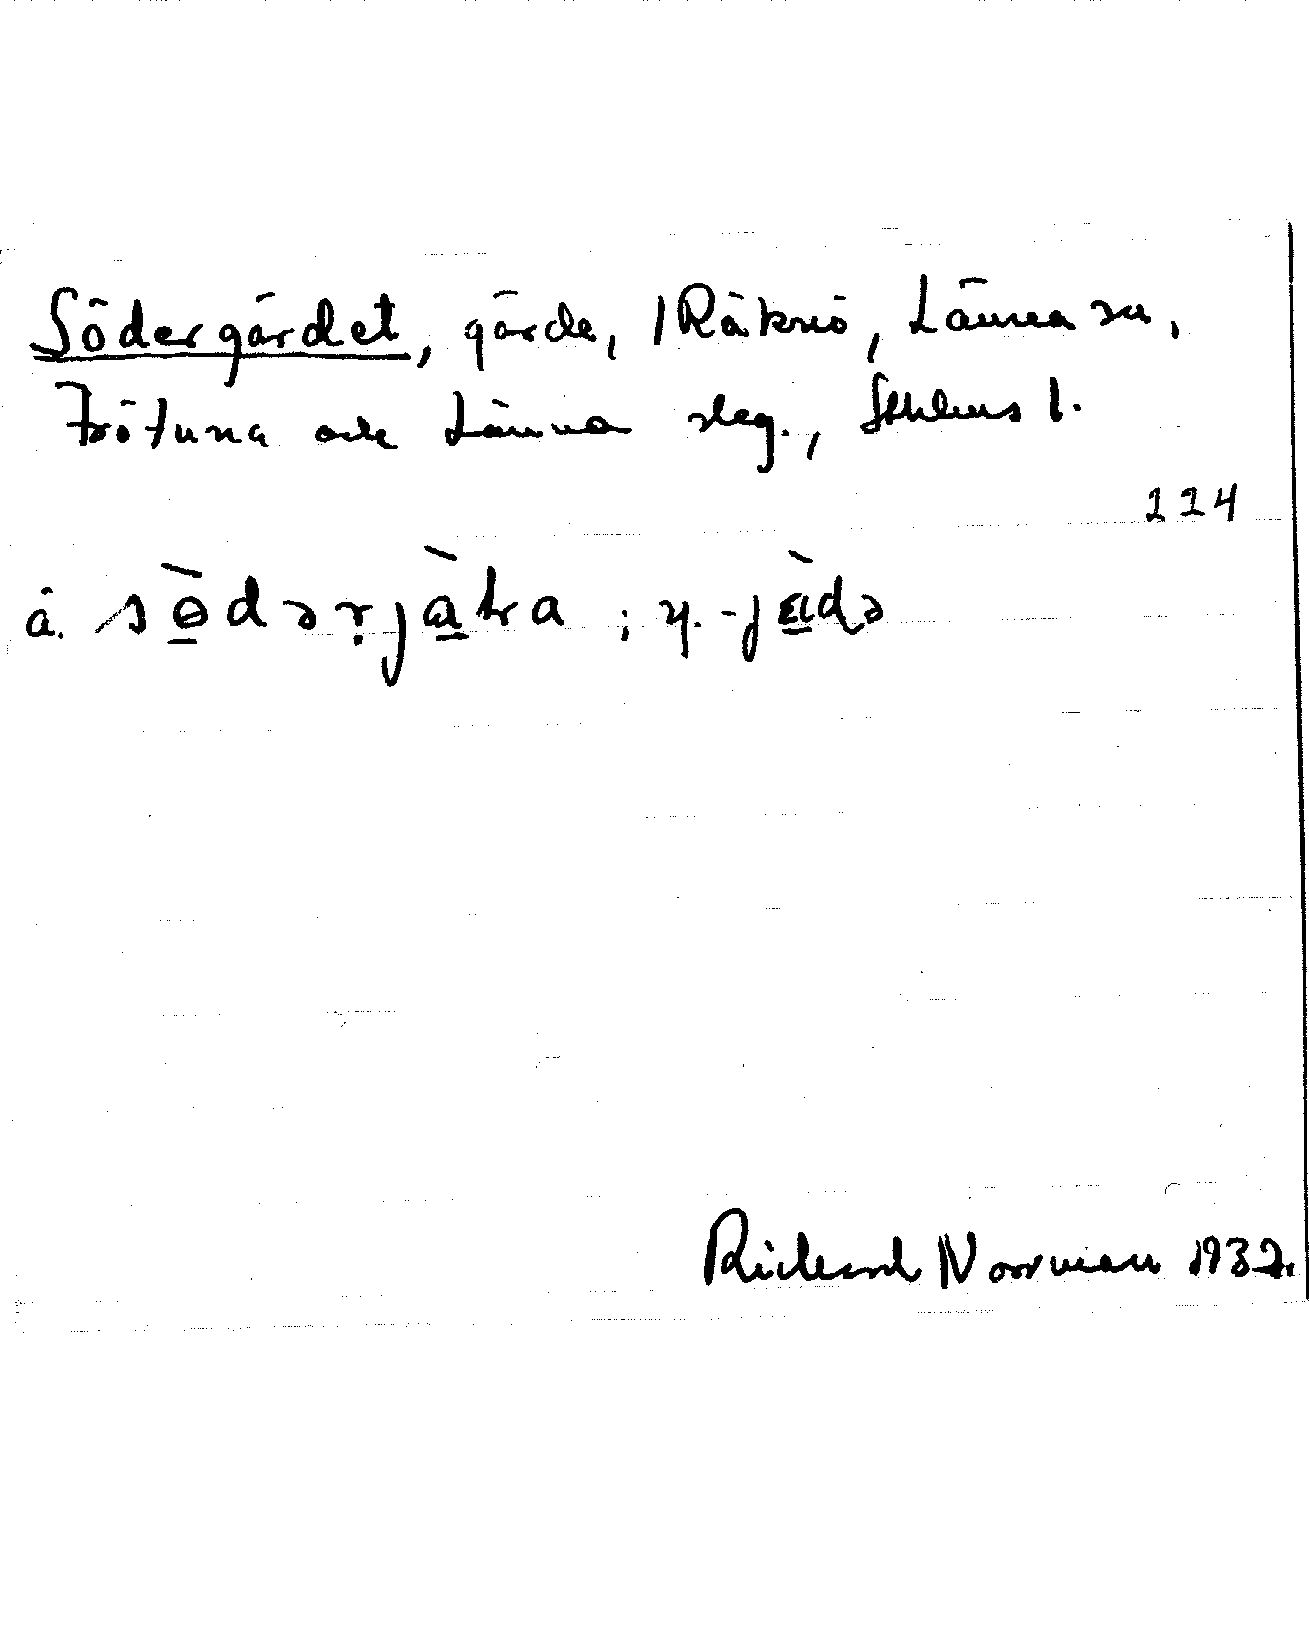 Södergärdet, gärde, Räknö, Länna sn,
Frötuna och Länna skg., Sthlms l.
224
ä. sö̀dərjä̀ka ; y. -jä̀də
Rickard Norrman 1932.